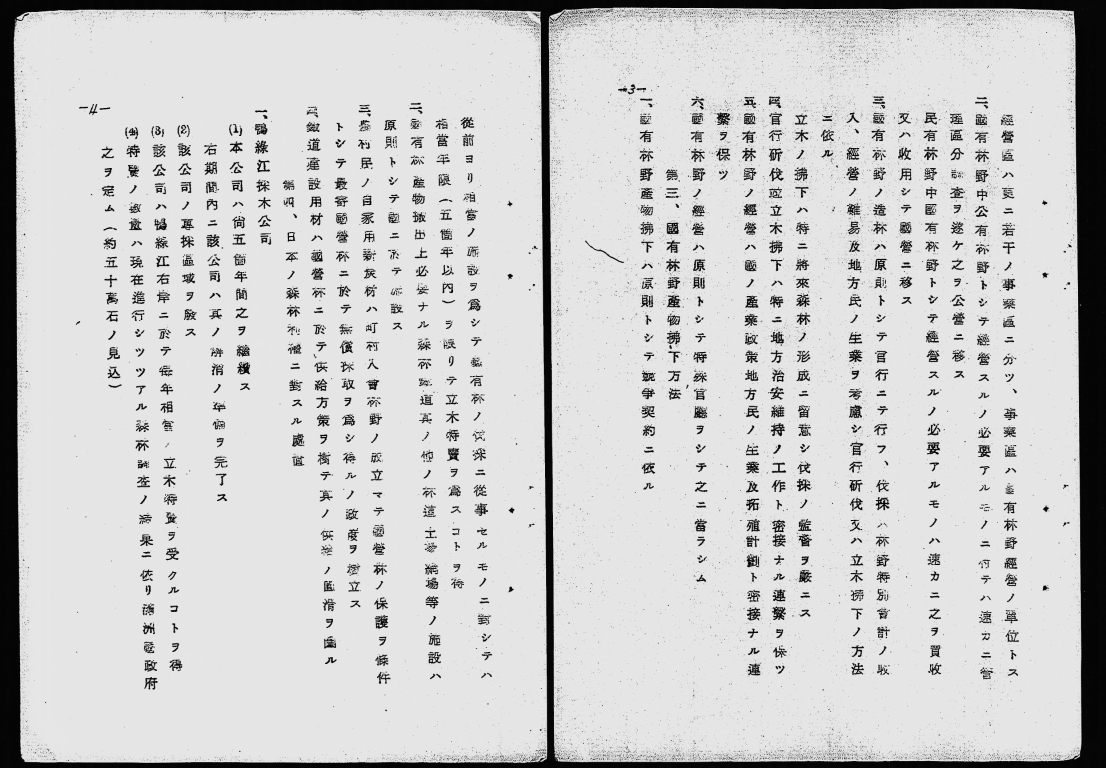 -3-
經營區ハ更ニ若干ノ事業區ニ分ツ、事業區ハ國有林野經營ノ單位トス
二、國有林野中公有林野トシテ經營スルノ必要アルモノニ付テハ速カニ管
理區分調査ヲ遂ケ之ヲ公營ニ移ス
民有林野中國有林野トシテ經營スルノ必要アルモノハ速カニ之ヲ買收
又ハ收用シテ國營ニ移ス
三、國有林野ノ造林ハ原則トシテ官行ニテ行フ、伐採ハ林野特別會計ノ收
入、經營ノ難易及地方民ノ生業ヲ考慮シ官行斫伐又ハ立木拂下ノ方法
ニ依ル
立木ノ拂下ハ特ニ將來森林ノ形成ニ留意シ伐採ノ監督ヲ嚴ニス
四、官行斫伐竝立木拂下ハ特ニ地方治安維持ノ工作ト密接ナル連繫ヲ保ツ
五、國有林野ノ經營ハ國ノ產業政策地方民ノ生業及拓殖計劃ト密接ナル連
繫ヲ保ツ
六、國有林野ノ經營ハ原則トシテ特殊官廳ヲシテ之ニ當ラシム
第三、國有林野產物拂下方法
一、國有林野產物拂下ハ原則トシテ競爭契約ニ依ル
-4-
從前ヨリ相當ノ施設ヲ爲シテ國有林ノ伐採ニ從事セルモノニ對シテハ
相當年限（五箇年以內）ヲ限リテ立木特賣ヲ爲スコトヲ得
二、國有林產物搬出上必要ナル森林鐵道其ノ他ノ林道土場網場等ノ施設ハ
原則トシテ國ニ於テ施設ス
三、農村民ノ自家用薪炭材ハ町村入會林野ノ成立マテ國營林ノ保護ヲ條件
トシテ最寄國營林ニ於テ無償採取ヲ爲シ得ルノ政度ヲ樹立ス
四、鐵道建設用材ハ國營林ニ於テ供給方策ヲ樹テ其ノ供給ノ圓滑ヲ圖ル
第四、日本ノ森林利權ニ對スル處置
一、鴨綠江採木公司
(1)本公司ハ尙五箇年間之ヲ繼續ス
右期間內ニ該公司ハ其ノ解消ノ準備ヲ完了ス
(2)該公司ノ專採區域ヲ廢ス
(3)該公司ハ鴨綠江右岸ニ於テ每年相當ノ立木特賣ヲ受クルコトヲ得
(4)特賣ノ數量ハ現在進行シツツアル森林調査ノ結果ニ依リ滿洲國政府
之ヲ定ム（約五十萬石ノ見込）